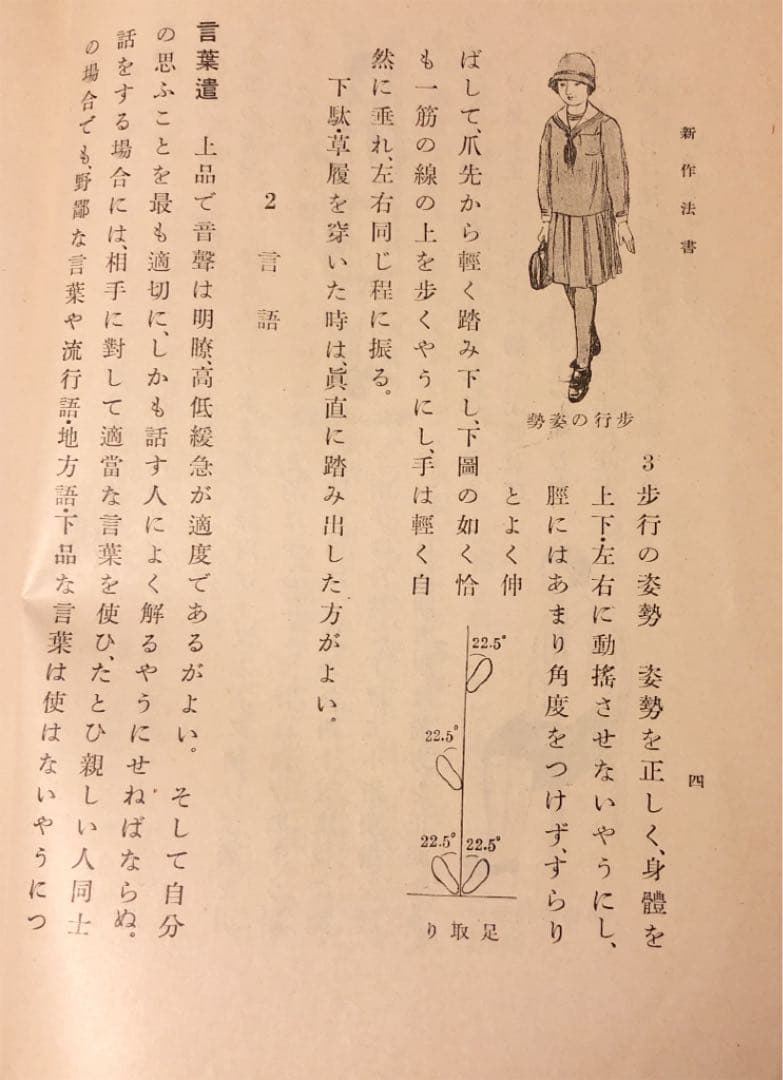 新作法書
四
歩行の姿勢
3 歩行の姿勢　姿勢を正しく、身體を
上下・左右に動搖させないやうにし、
脛にはあまり角度をつけず、すらり
とよく伸
ばして、爪先から輕く踏み下し、下圖の如く恰
も一筋の線の上を歩くやうにし、手は輕く自
然に垂れ、左右同じ程に振る。
下駄・草履を穿いた時は、眞直に踏み出した方がよい。
22.5°
22.5°
22.5°
22.5°
足取り
2 言語
言葉遣　上品で音聲は明瞭、高低緩急が適度であるがよい。そして自分
の思ふことを最も適切に、しかも話す人によく解るやうにせねばならぬ。
話をする場合には、相手に對して適當な言葉を使ひ、たとひ親しい人同士
の場合でも、野鄙な言葉や流行語・地方語・下品な言葉は使はないやうにつ